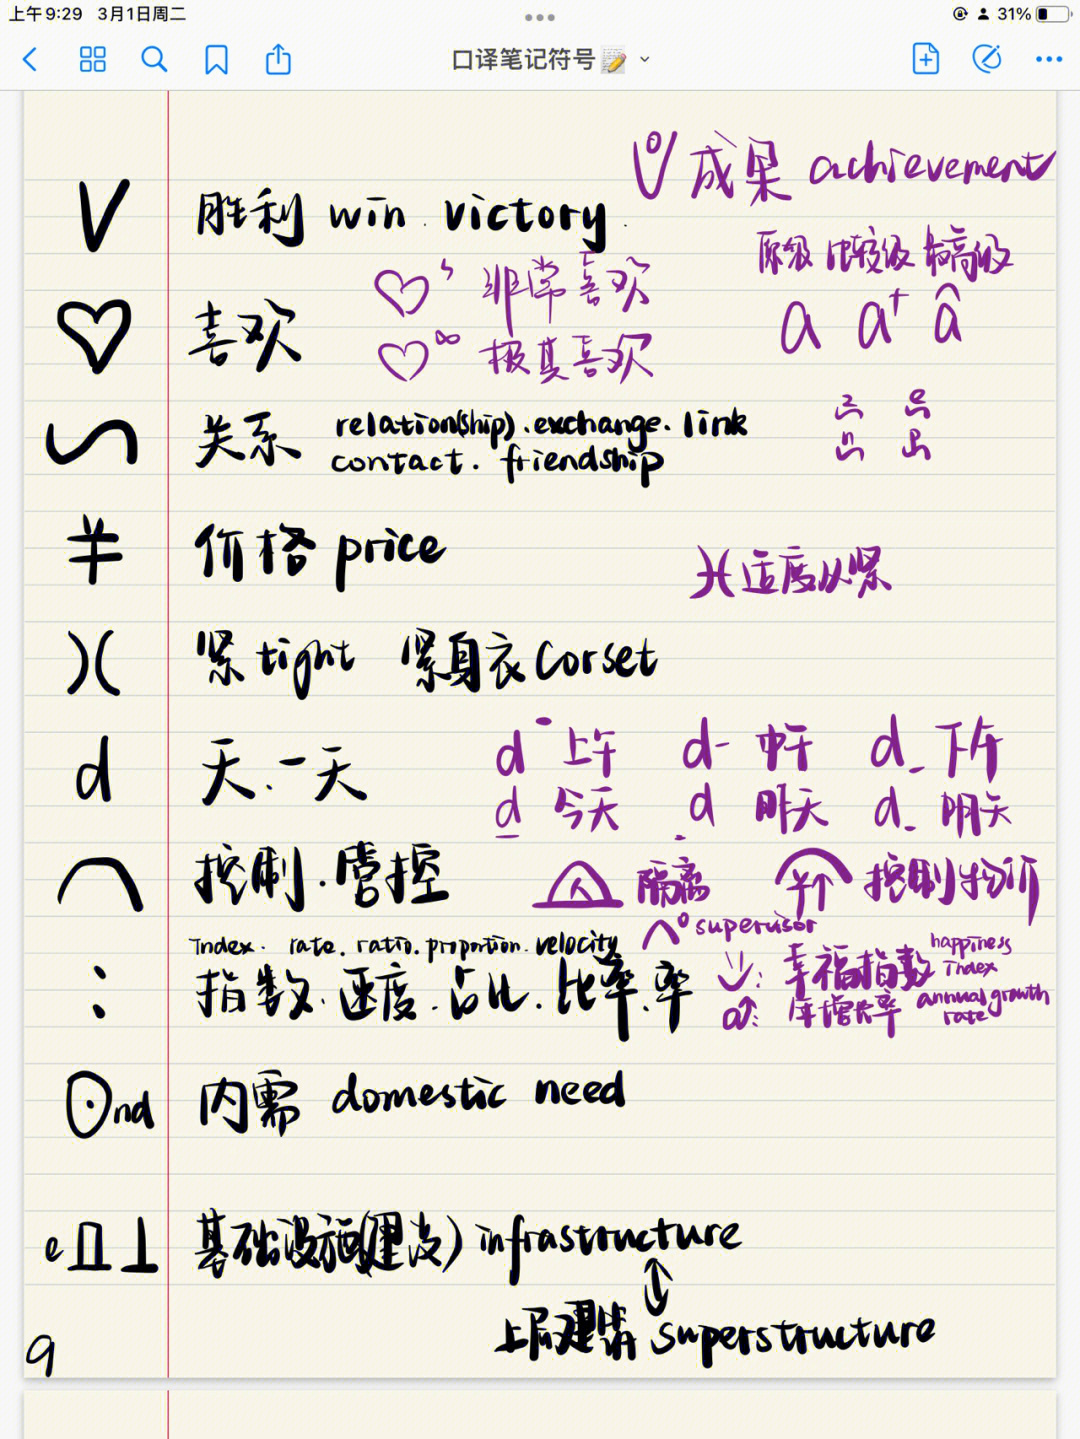 上午9:29 3月1日周二 31%
口译笔记符号
V 胜利 win. victory. 成果 achievement
原级 比较级 最高级
非常喜欢
a a⁺ â
喜欢
极其喜欢
关系 relation(ship).exchange.link
contact. friendship
价格 price
适度从紧
紧 tight 紧身衣 corset
d 天.一天 d 上午 d- 中午 d_ 下午
d 今天 d 昨天 d. 明天
控制.管控 隔离 控制物价
supervisor
Index. rate. ratio. proportion. velocity
: 指数.速度.占比.比率.率 : 幸福指数 happiness Index
a↑: 年增长率 annual growth rate
nd 内需 domestic need
e 基础设施(建设) infrastructure
上层建筑 superstructure
9